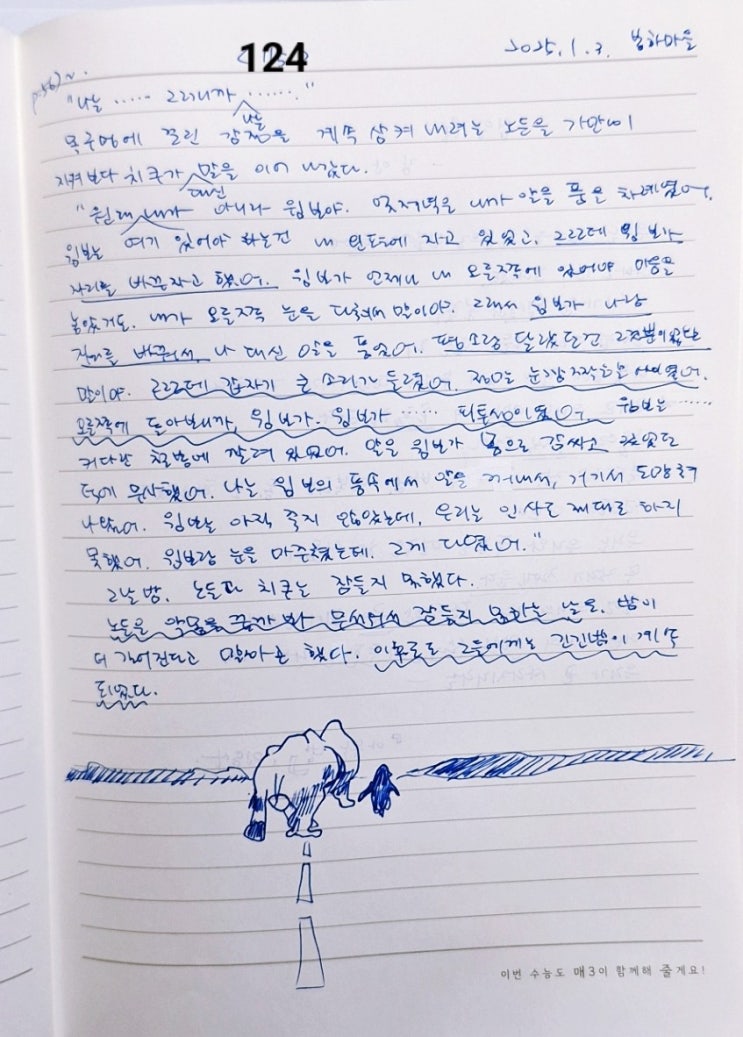 124
2025. 1. 3. 범하마을
p.56)~.
"나는 ······ 그러니까 ······."
나는
목구멍에 걸린 감정을 계속 삼켜 내려는 노든을 가만히
지켜보다 치쿠가 말을 이어 나갔다.
대신
"원래 내가 아니라 윔보야. 어제저녁은 내가 알을 품을 차례였어.
윔보는 여기 있어야 하는건 내 왼쪽에 자고 있었고, 그런데 윔보가
자리를 바꾸자고 했어. 윔보가 언제나 내 오른쪽에 있어야 마음을
놓았거든. 내가 오른쪽 눈을 다쳐서 말이야. 그래서 윔보가 나랑
자리를 바꾸어서, 나 대신 알을 품었어. 평소랑 달랐던건 그것뿐이었단
말이야. 그런데 갑자기 큰 소리가 들렸어. 정말 눈 깜짝할 사이였어.
오른쪽에 돌아보니까, 윔보가. 윔보가 ······ 피투성이였어. 윔보는 ······
커다란 철봉에 깔려 있었어. 알은 윔보가 몸으로 감싸고 있었던
덕에 무사했어. 나는 윔보의 품속에서 알을 꺼내서, 거기서 도망쳐
나왔어. 윔보는 아직 죽지 않았는데, 우리는 인사도 제대로 하지
못했어. 윔보랑 눈을 마주쳤는데. 그게 다였어."
그날 밤. 노든과 치쿠는 잠들지 못했다.
노든은 악몽을 꿀까 봐 무서워서 잠들지 못하는 날은. 밤이
더 길어진다고 말하곤 했다. 이후로도 그들에게는 긴긴밤이 계속
되었다.
이번 수능도 매3이 함께해 줄게요!